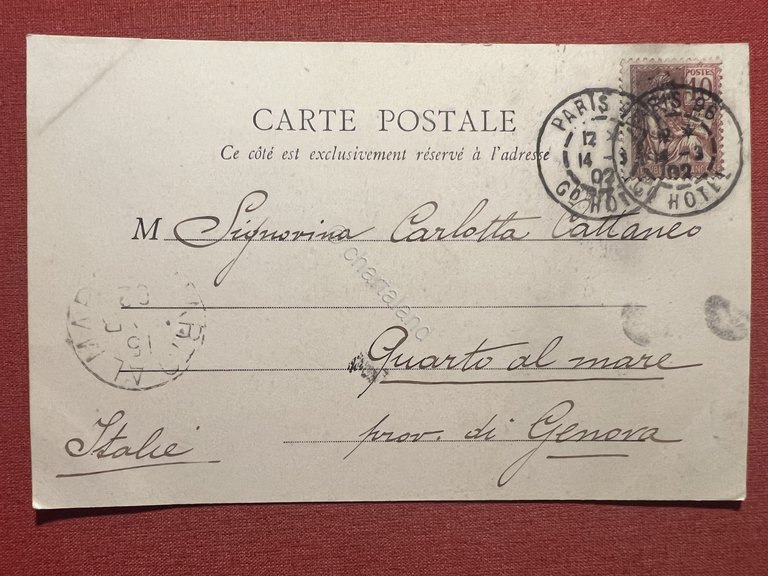 CARTE POSTALE
Ce côté est exclusivement réservé à l'adresse
POSTES
10
PARIS
12
14 - 3
02
Gd HOTEL
PARIS 86
14 - 3
02
Gd HOTEL
M Signorina Carlotta Cattaneo
Quarto al mare
prov. di Genova
Italie
AL MARE
15
02
chartaland